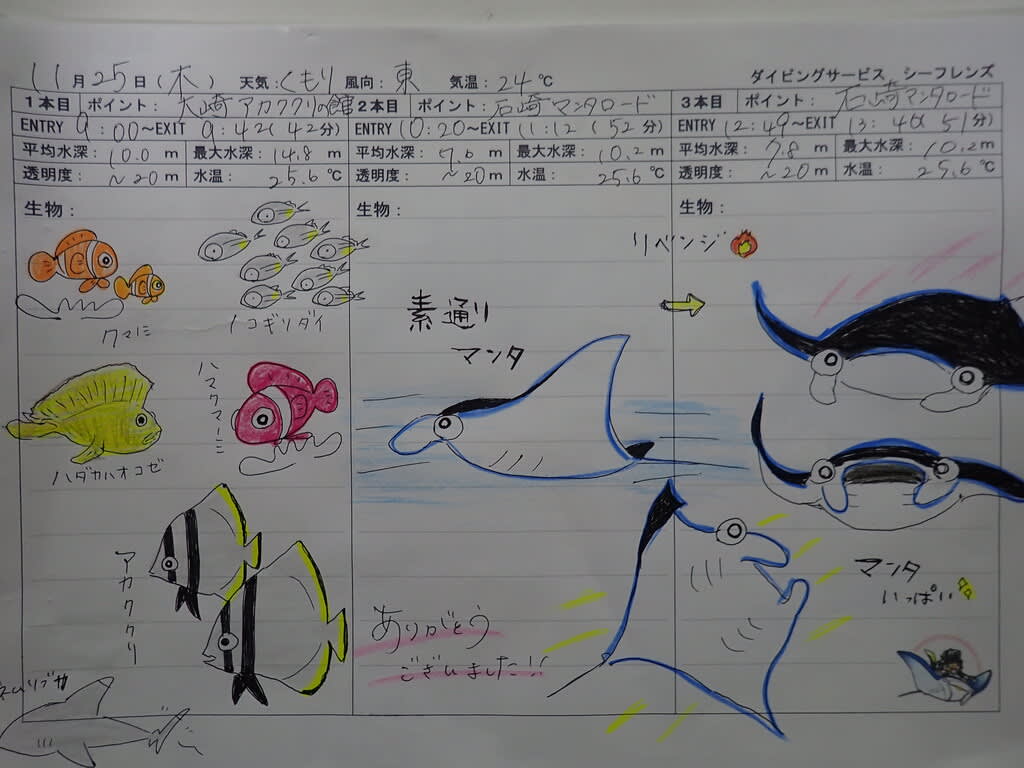 11月25日(木) 天気:くもり 風向:東 気温:24℃
ダイビングサービス シーフレンズ
1本目 ポイント:大崎アカククリの館
ENTRY 9:00〜EXIT 9:42(42分)
平均水深:10.0m 最大水深:14.8m
透明度:〜20m 水温:25.6℃
生物:
クマノミ
ノコギリダイ
ハダカハオコゼ
ハマクマノミ
アカククリ
ネムリブカ
2本目 ポイント:石崎マンタロード
ENTRY 10:20〜EXIT 11:12(52分)
平均水深:7.6m 最大水深:10.2m
透明度:〜20m 水温:25.6℃
生物:
素通り
マンタ
ありがとう
ございました!!
3本目 ポイント:石崎マンタロード
ENTRY 12:49〜EXIT 13:40(51分)
平均水深:7.8m 最大水深:10.2m
透明度:〜20m 水温:25.6℃
生物:
リベンジ
マンタ
いっぱい